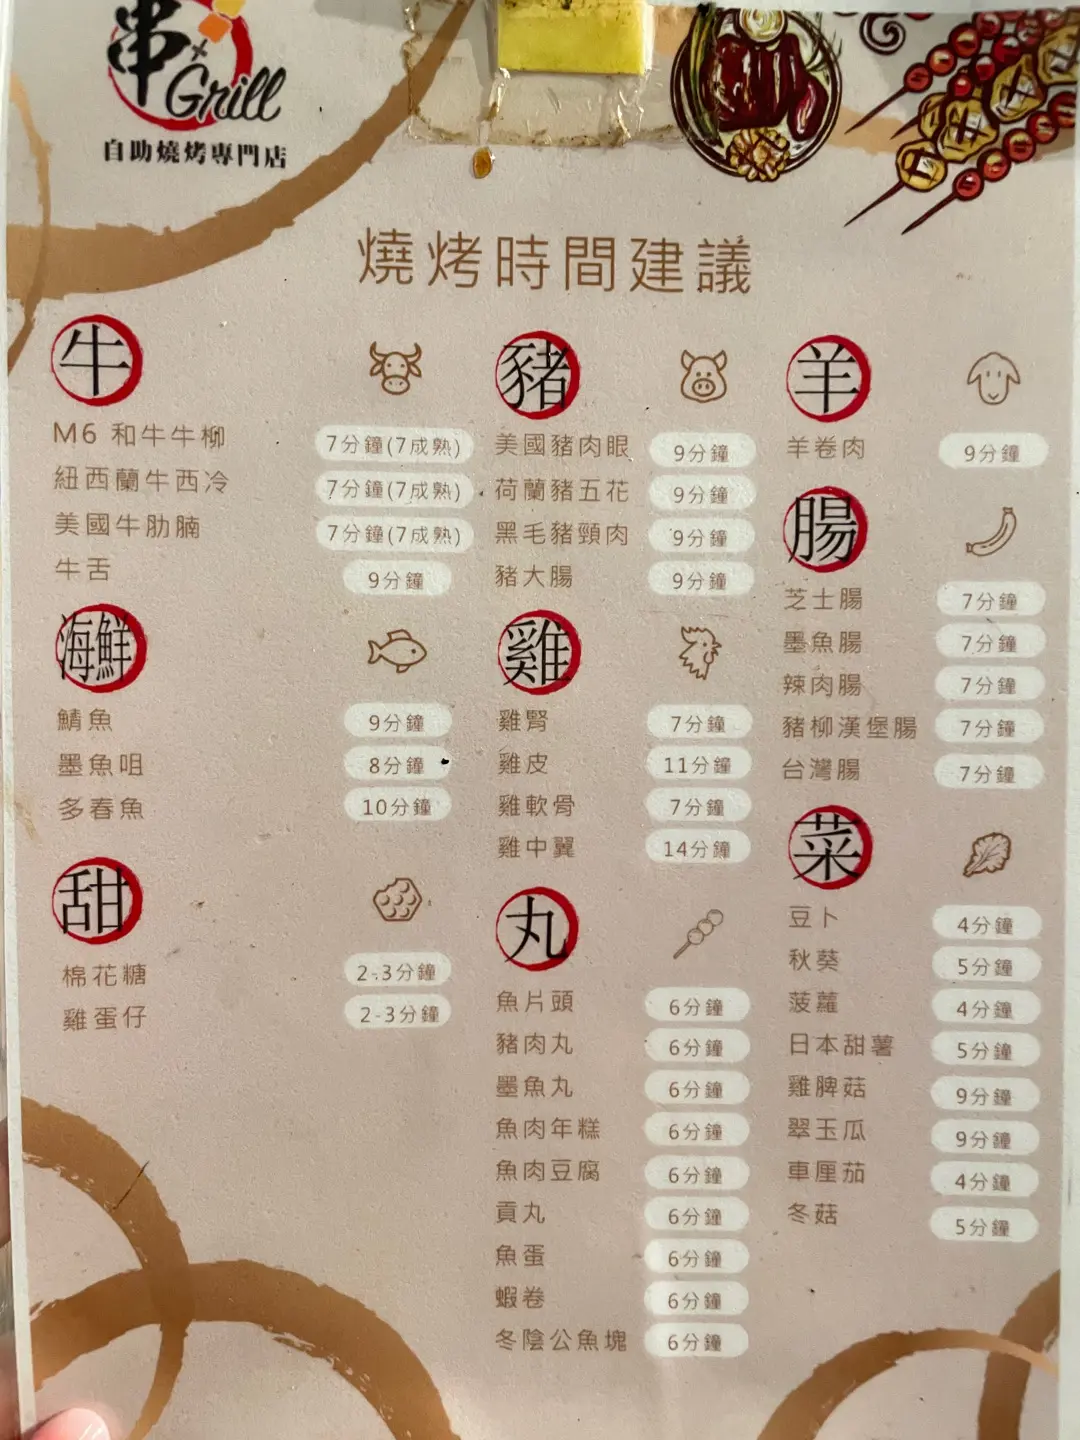 串
×
Grill
自助燒烤專門店
燒烤時間建議
牛
M6 和牛牛柳 7分鐘(7成熟)
紐西蘭牛西冷 7分鐘(7成熟)
美國牛肋腩 7分鐘(7成熟)
牛舌 9分鐘
海鮮
鯖魚 9分鐘
墨魚咀 8分鐘
多春魚 10分鐘
甜
棉花糖 2-3分鐘
雞蛋仔 2-3分鐘
豬
美國豬肉眼 9分鐘
荷蘭豬五花 9分鐘
黑毛豬頸肉 9分鐘
豬大腸 9分鐘
雞
雞腎 7分鐘
雞皮 11分鐘
雞軟骨 7分鐘
雞中翼 14分鐘
丸
魚片頭 6分鐘
豬肉丸 6分鐘
墨魚丸 6分鐘
魚肉年糕 6分鐘
魚肉豆腐 6分鐘
貢丸 6分鐘
魚蛋 6分鐘
蝦卷 6分鐘
冬陰公魚塊 6分鐘
羊
羊卷肉 9分鐘
腸
芝士腸 7分鐘
墨魚腸 7分鐘
辣肉腸 7分鐘
豬柳漢堡腸 7分鐘
台灣腸 7分鐘
菜
豆卜 4分鐘
秋葵 5分鐘
菠蘿 4分鐘
日本甜薯 5分鐘
雞脾菇 9分鐘
翠玉瓜 9分鐘
車厘茄 4分鐘
冬菇 5分鐘